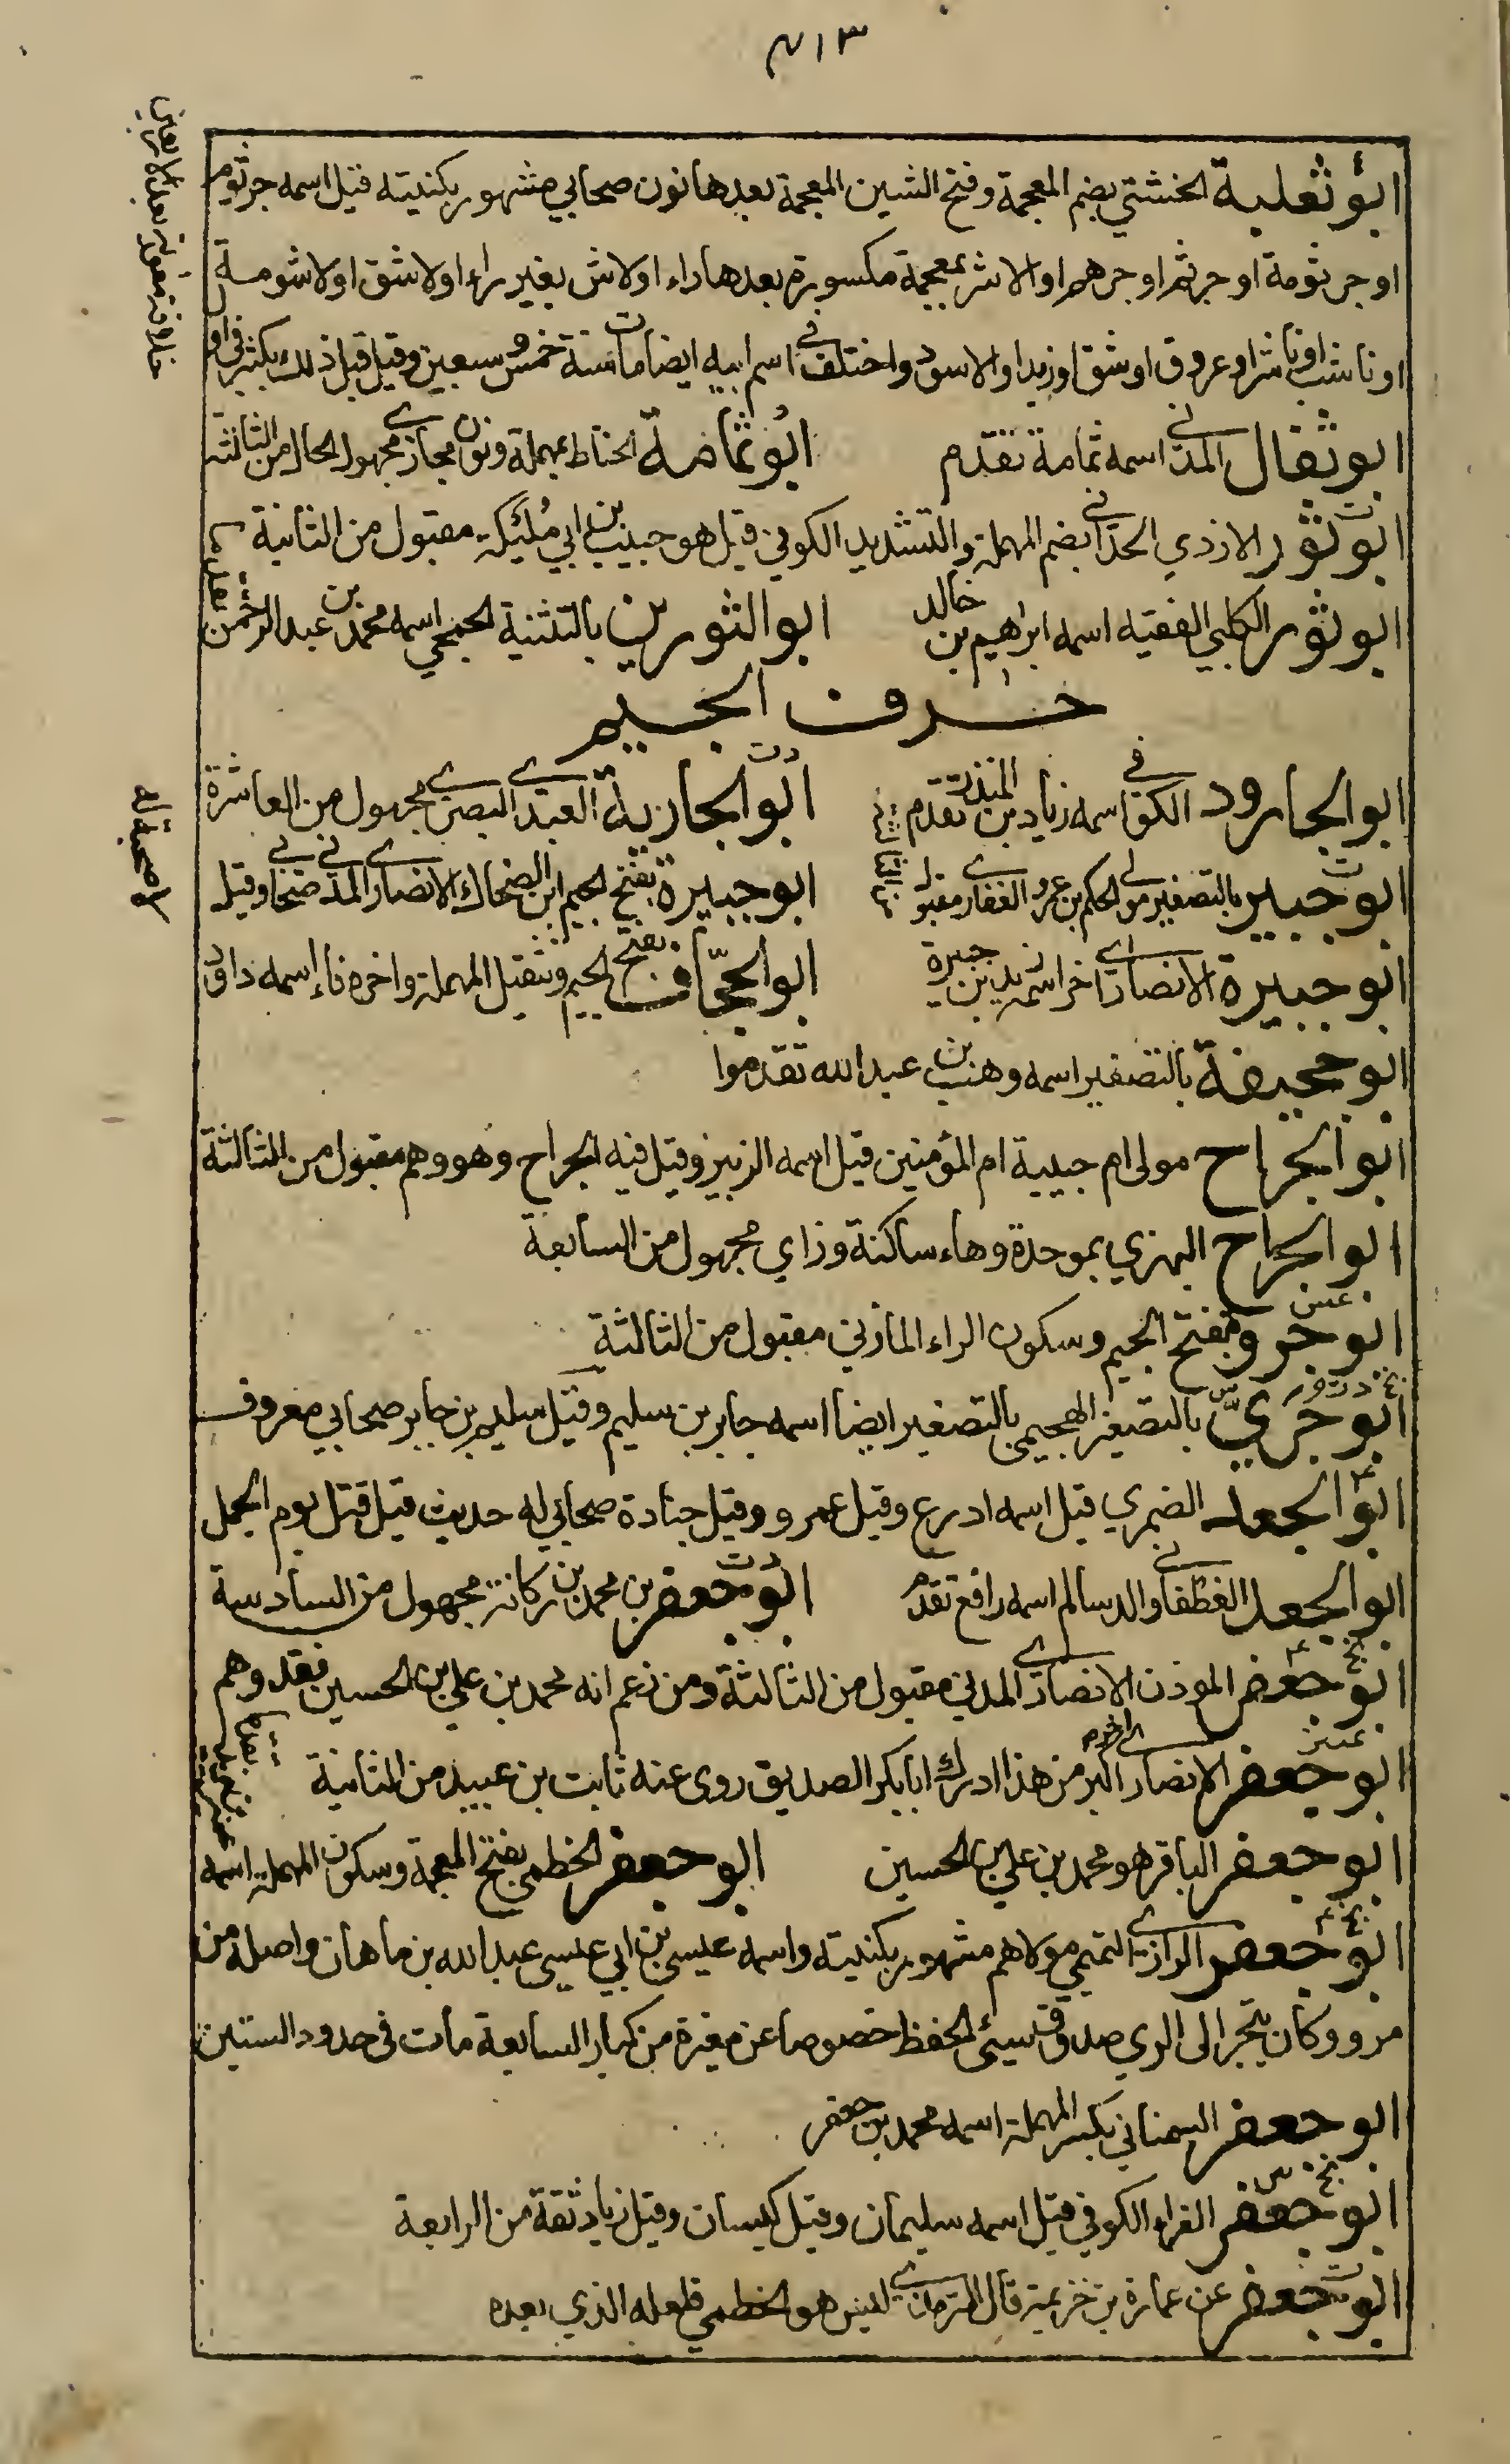 ٣١٣
ابو ثعلبة الخشني بضم المعجمة وفتح الشين المعجمة بعدها نون صحابي مشهور بكنيته قيل اسمه جرثوم
او جرثومة او جرثم او جرهم او لاشر بمعجمة مكسورة بعدها راء او لاش بغير راء او لاشق او لاشومة
او ناشب او ناشر او عروق او شق او زيد او الاسود واختلف في اسم ابيه ايضا مات سنة خمس وسبعين وقيل قبل ذلك بكثير في اول
خلافة معوية بعد الاربعين
ابو ثفال المدني اسمه ثمامة تقدم
ابو ثمامة الحناط بمهملة ونون حجازي مجهول الحال من الثالثة
ابو ثور الازدي الحداني بضم المهملة والتشديد الكوفي قيل هو حبيب بن ابي مليكة مقبول من الثانية
ابو ثور الكلبي الفقيه اسمه ابراهيم بن خالد
ابو الثورين بالتثنية الجمحي اسمه محمد بن عبد الرحمن
حرف الجيم
ابو الجارود الكوفي اسمه زياد بن المنذر تقدم
ابو الجارية العبدي البصري مجهول من العاشرة
ابو جبير بالتصغير مولى الحكم بن عمرو الغفاري مقبول
ابو جبيرة بفتح الجيم ابن الضحاك الانصاري المدني صحابي وقيل
لا صحبة له
ابو جبيرة الانصاري اخر اسمه زيد بن جبيرة
ابو الجحاف بفتح الجيم وتثقيل المهملة واخره فاء اسمه داود
ابو جحيفة بالتصغير اسمه وهب بن عبد الله تقدموا
ابو الجراح مولى ام حبيبة ام المؤمنين قيل اسمه الزبير وقيل فيه الجراح وهو وهم مقبول من الثالثة
ابو الجراح البهزي بموحدة وهاء ساكنة وزاي مجهول من السابعة
ابو جرو بفتح الجيم وسكون الراء المازني مقبول من الثالثة
ابو جري بالتصغير الهجيمي بالتصغير ايضا اسمه جابر بن سليم وقيل سليم بن جابر صحابي معروف
ابو الجعد الضمري قيل اسمه ادرع وقيل عمرو وقيل جنادة صحابي له حديث قيل قتل يوم الجمل
ابو الجعد الغطفاني والد سالم اسمه رافع تقدم
ابو جعفر بن محمد بن ركانة مجهول من السادسة
ابو جعفر الموذن الانصاري المدني مقبول من الثالثة ومن زعم انه محمد بن علي بن الحسين فقد وهم
ابو جعفر الانصاري اخر اكبر من هذا ادرك ابا بكر الصديق روى عنه ثابت بن عبيد من الثانية
ابو جعفر الباقر هو محمد بن علي بن الحسين
ابو جعفر الخطمي بفتح المعجمة وسكون المهملة اسمه
ابو جعفر الرازي التميمي مولاهم مشهور بكنيته واسمه عيسى بن ابي عيسى عبد الله بن ماهان واصله من
مرو وكان يتجر الى الري صدوق سيئ الحفظ خصوصا عن مغيرة من كبار السابعة مات في حدود الستين
ابو جعفر السمناني بكسر المهملة اسمه محمد بن جعفر
ابو جعفر الفراء الكوفي قيل اسمه سليمان وقيل كيسان وقيل زياد ثقة من الرابعة
ابو جعفر عن عمارة بن خزيمة قال الترمذي ليس هو الخطمي فلعله الذي بعده